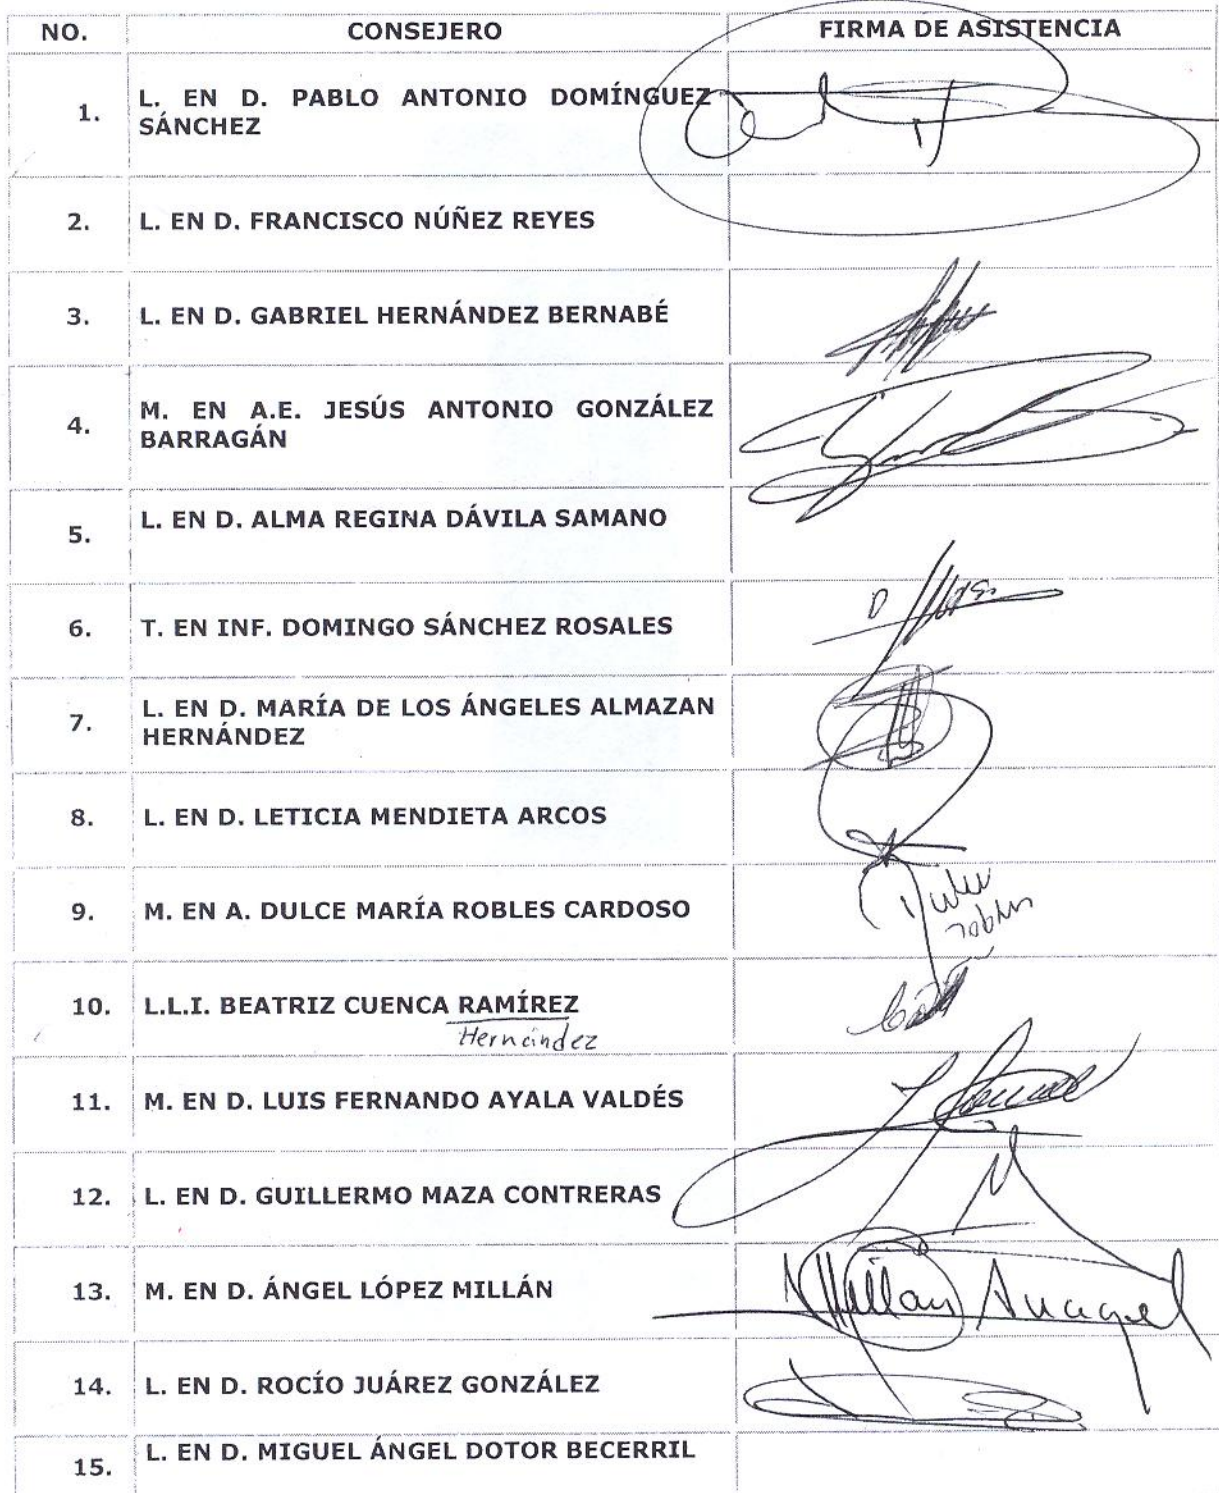 NO. CONSEJERO FIRMA DE ASISTENCIA
1. L. EN D. PABLO ANTONIO DOMÍNGUEZ
SÁNCHEZ
2. L. EN D. FRANCISCO NÚÑEZ REYES
3. L. EN D. GABRIEL HERNÁNDEZ BERNABÉ
4. M. EN A.E. JESÚS ANTONIO GONZÁLEZ
BARRAGÁN
5. L. EN D. ALMA REGINA DÁVILA SAMANO
6. T. EN INF. DOMINGO SÁNCHEZ ROSALES
7. L. EN D. MARÍA DE LOS ÁNGELES ALMAZAN
HERNÁNDEZ
8. L. EN D. LETICIA MENDIETA ARCOS
9. M. EN A. DULCE MARÍA ROBLES CARDOSO
10. L.L.I. BEATRIZ CUENCA RAMÍREZ
Hernández
11. M. EN D. LUIS FERNANDO AYALA VALDÉS
12. L. EN D. GUILLERMO MAZA CONTRERAS
13. M. EN D. ÁNGEL LÓPEZ MILLÁN
14. L. EN D. ROCÍO JUÁREZ GONZÁLEZ
15. L. EN D. MIGUEL ÁNGEL DOTOR BECERRIL